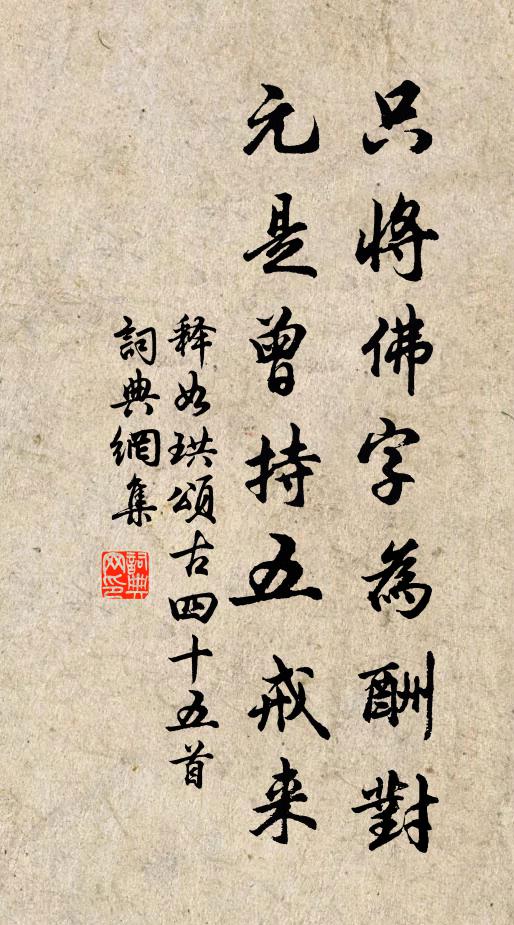 只将佛字為酬對
元是曾持五戒来
释如珙頌古四十五首
詞典網集
詞典網印